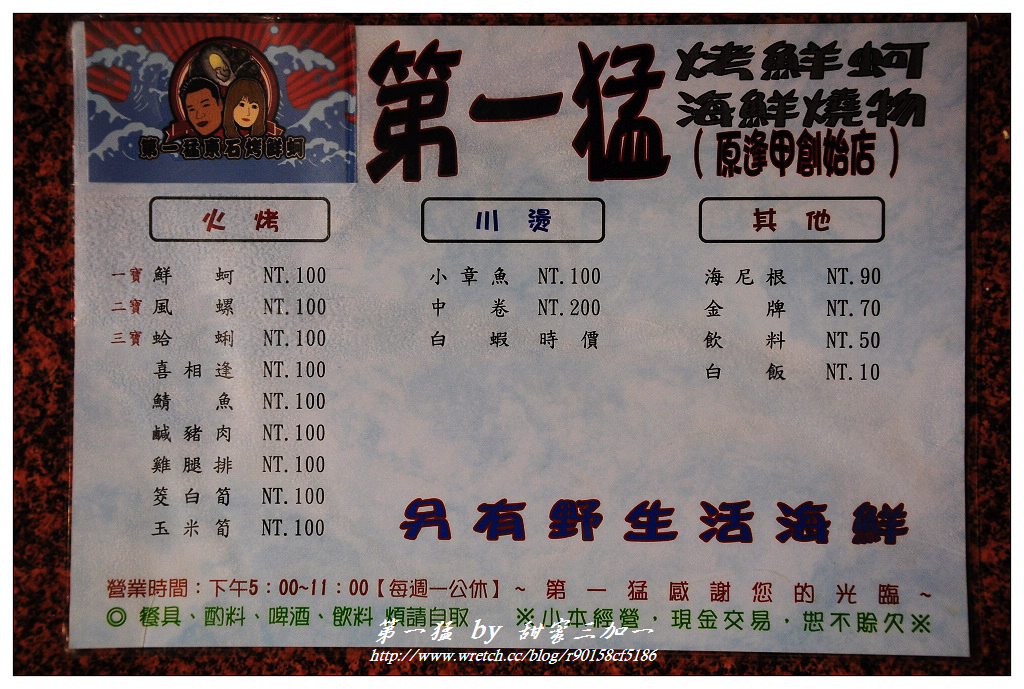 第一猛東石烤鮮蚵
第一猛
烤鮮蚵
海鮮燒物
(原逢甲創始店)
火烤
一寶 鮮蚵 NT.100
二寶 風螺 NT.100
三寶 蛤蜊 NT.100
喜相逢 NT.100
鯖魚 NT.100
鹹豬肉 NT.100
雞腿排 NT.100
筊白筍 NT.100
玉米筍 NT.100
川燙
小章魚 NT.100
中卷 NT.200
白蝦 時價
其他
海尼根 NT.90
金牌 NT.70
飲料 NT.50
白飯 NT.10
另有野生活海鮮
營業時間：下午5：00~11：00【每週一公休】~ 第一猛感謝您的光臨 ~
◎ 餐具、酌料、啤酒、飲料 煩請自取 ※小本經營，現金交易，恕不賒欠※
第一猛 by 甜蜜三加一
http://www.wretch.cc/blog/r90158cf5186